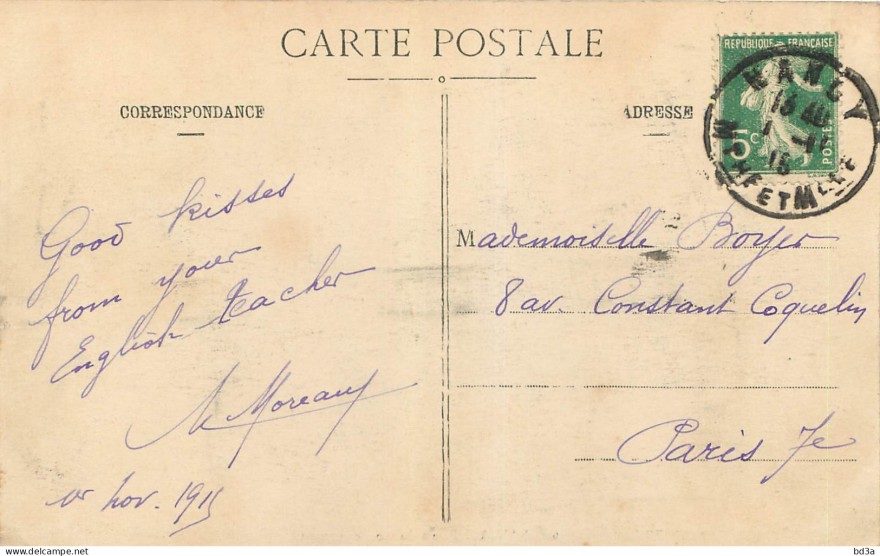 CARTE POSTALE
CORRESPONDANCE
Good kisses
from your
English teacher
Moreau
nov. 1915
ADRESSE
Mademoiselle Boyer
8 av. Constant Coquelin
Paris 7e
REPUBLIQUE FRANÇAISE
5c
POSTES
NANCY
MTHE ET MLLE
www.delcampe.net
bd3a